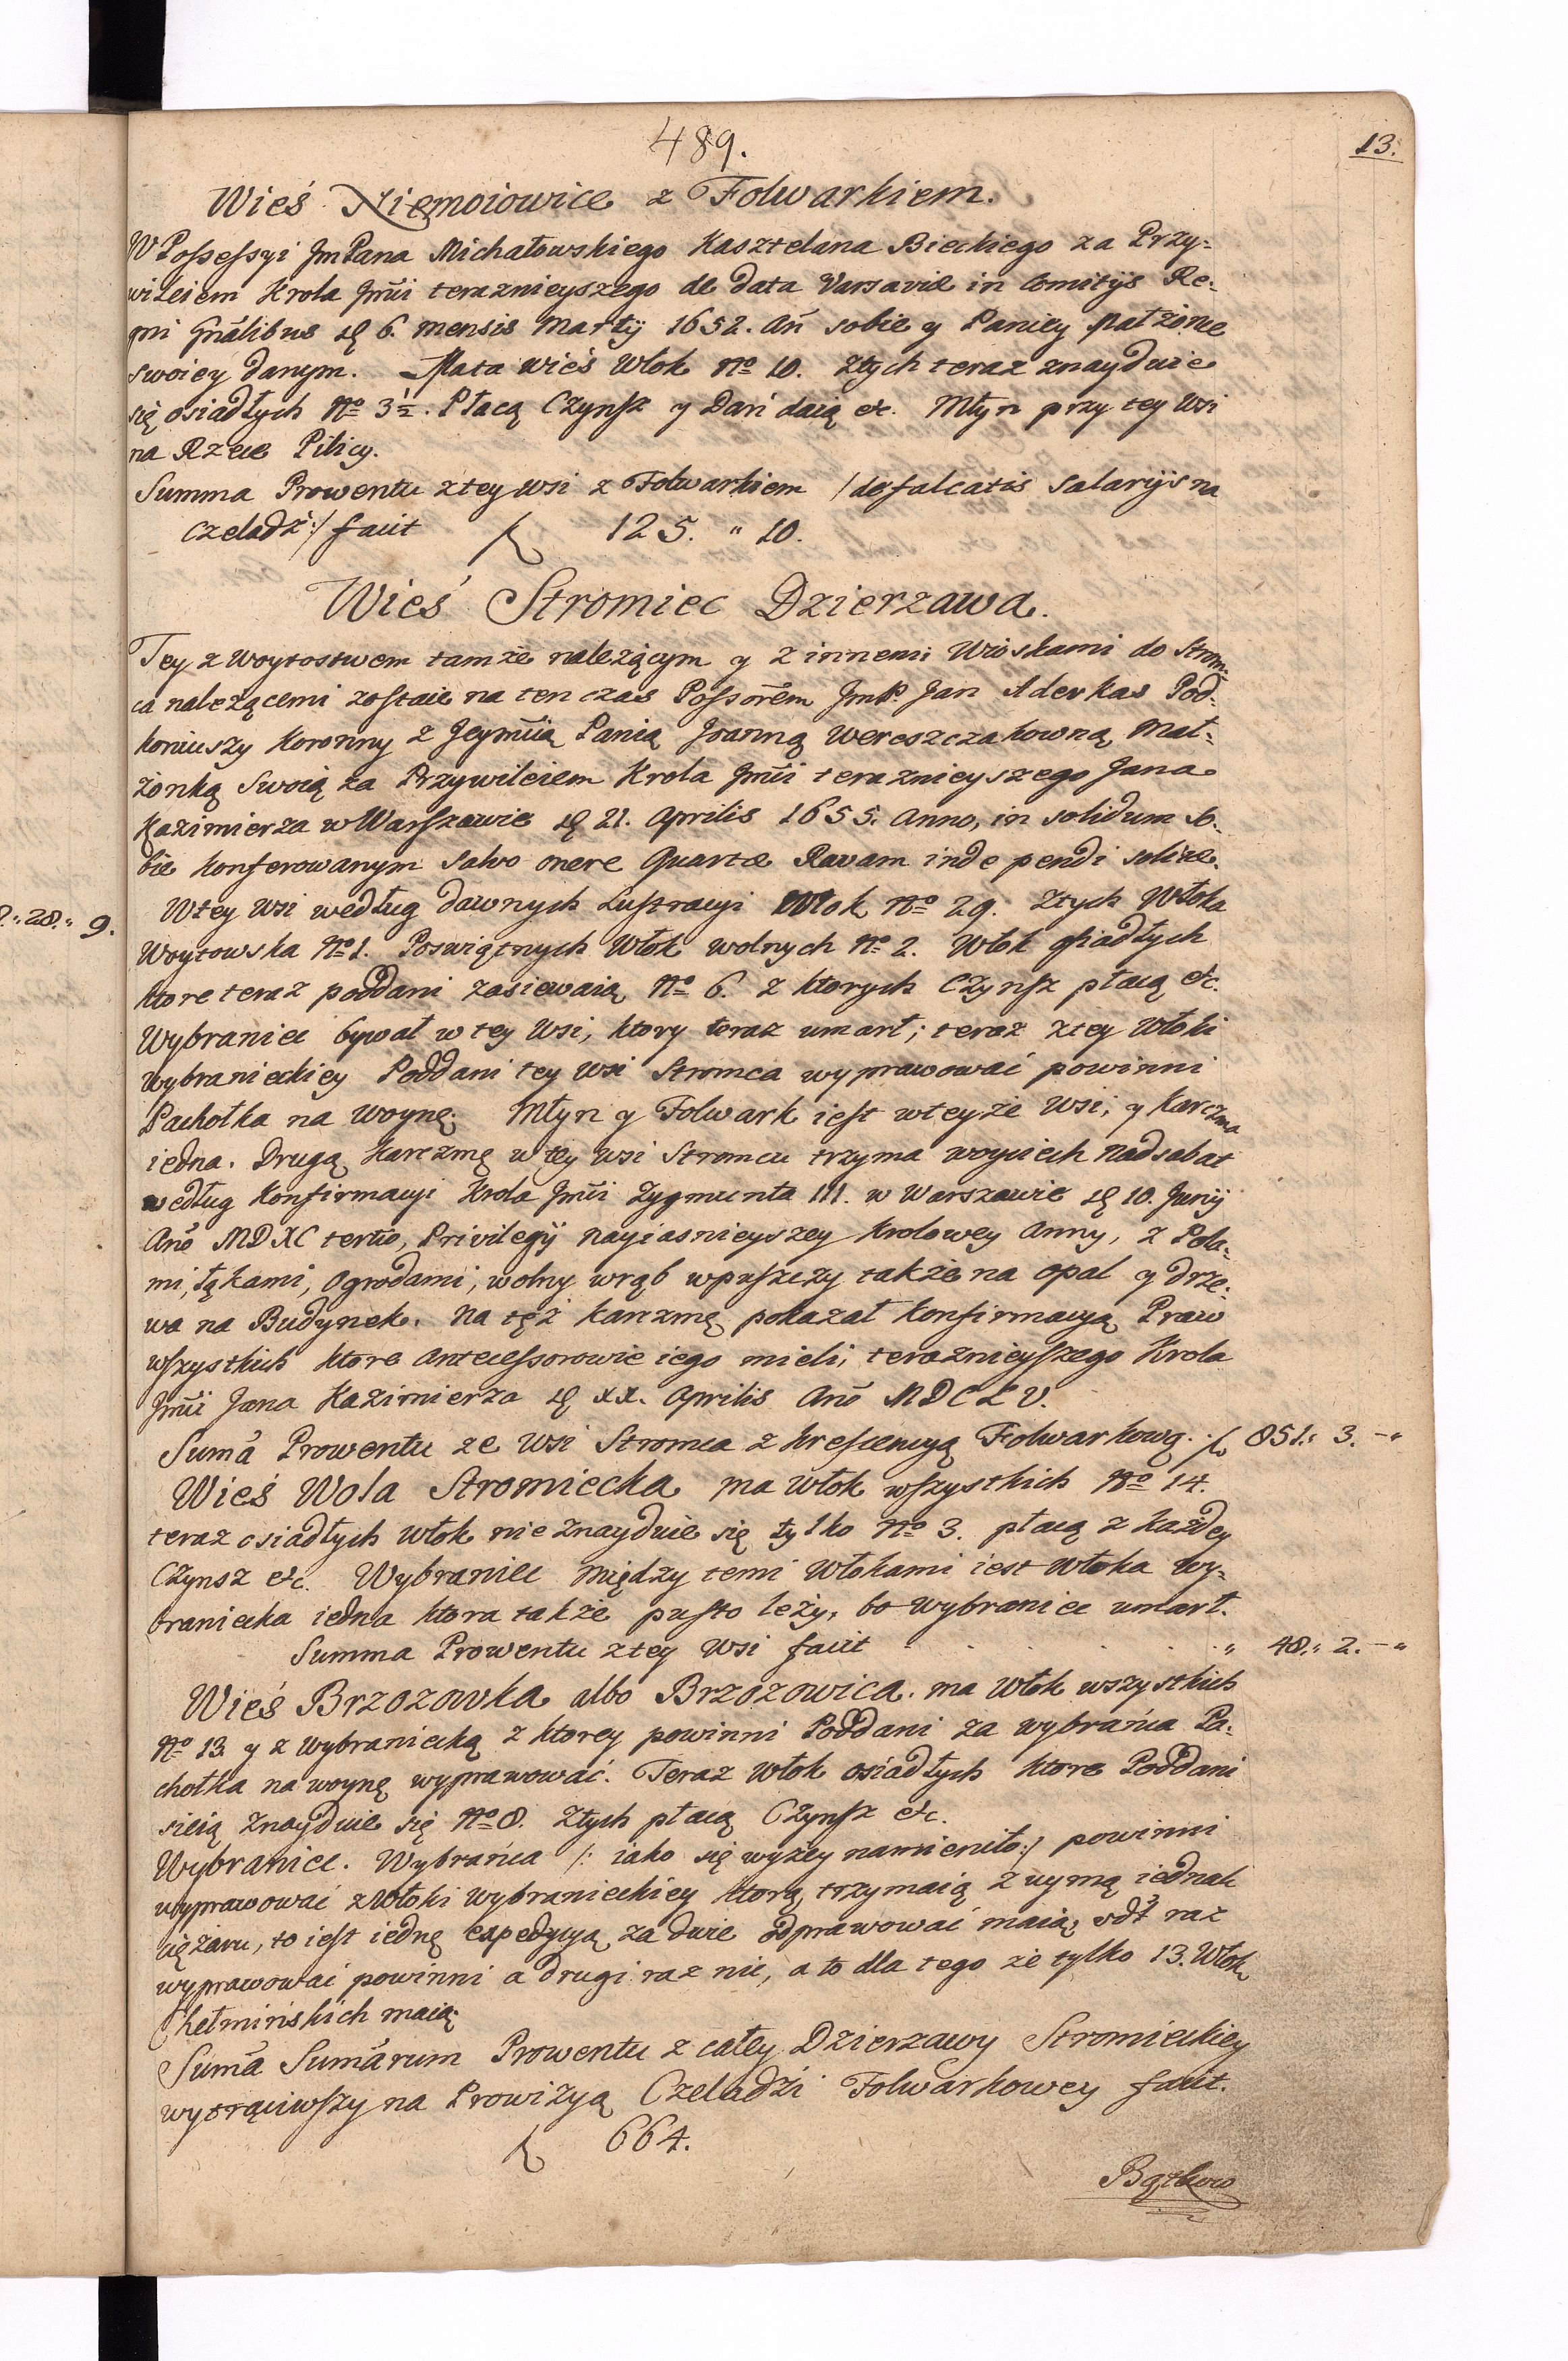 489.
13.
Wieś Niemoiowice z Folwarkiem.
W Possessyi JmPana Michałowskiego Kasztelana Bieckiego za Przy-
wileiem Krola Jmći teraznieyszego de data Varsaviæ in Comitijs Re-
gni Gnālibus d. 6. mensis Martij 1652. Añ sobie y Paniey Małżonce
swoiey danym. Mata Wieś Włok No 10. Ztych teraz znayduie
się osiadłych No 3½. Płacą Czynsz y Dań daią etc. Młyn przy tey Wsi
na Rzece Pilicy.
Summa Prowentu ztey Wsi z Folwarkiem /:defalcatis Salarijs na
Czeladź:/ facit f 125. " 10.
Wieś Stromiec Dzierzawa.
Tey z Woytostwem tamże należącym y z innemi Wioskami do Strom-
ca należącemi zostaie na ten czas Possorem JmP. Jan Aderkas Pod-
koniuszy Koronny z Jeymcią Panią Joanną Wereszczakowną Mał-
żonką Swoią za Przywileiem Krola Jmći teraznieyszego Jana
Kazimierza w Warszawie d. 21. Aprilis 1655. Anno, in solidum so-
bie konferowanym Salvo onere Quartæ Ravam inde pendi solitæ.
W tey Wsi według dawnych Lustracyi Włok No 29. Ztych Włoka
Woytowska No 1. Poswiętnych Włok wolnych No 2. Włok osiadłych
ktore teraz poddani zasiewaią No 6. z ktorych Czynsz płacą etc.
Wybraniec bywał w tey Wsi, ktory teraz umarł; teraz ztey Włoki
Wybranieckiey Poddani tey Wsi Stromca wyprawować powinni
Pachołka na Woynę. Młyn y Folwark iest w teyże Wsi, y Karczma
iedna. Drugą Karczmę w tey Wsi Stromcu trzyma Woyciech Nadsabat
według Konfirmacyi Krola Jmći Zygmunta III. w Warszawie d. 10. Junij
Anō MDXC tertio, Privilegij Nayiasnieyszey Krolowey Anny, z Pola-
mi, Łąkami, Ogrodami, wolny wrąb w puszczy także na opał y drze-
wa na Budynek. Na tęż Karczmę pokazał Konfirmacyą Praw
wszystkich ktore Antecessorowie iego mieli, teraznieyszego Krola
Jmći Jana Kazimierza d. XX. Aprilis Anō MDCLV.
Sumā Prowentu ze Wsi Stromca z Krescencyą Folwarkową. f 851." 3. -"
Wieś Wola Stromiecka ma Włok wszystkich No 14.
teraz osiadłych Włok nie znayduie się tylko No 3. płacą z każdey
Czynsz etc. Wybraniec między temi Włokami iest Włoka Wy-
braniecka iedna ktora także pusto leży, bo Wybraniec umarł.
Summa Prowentu ztey Wsi facit . . . . . " 48." 2. -"
Wieś Brzozowka albo Brzozowica. ma Włok wszystkich
No 13. y z Wybraniecką z ktorey powinni Poddani za Wybrańca Pa-
chołka na woynę wyprawować. Teraz Włok osiadłych ktore Poddani
sieią znayduie się No 8. Ztych płacą Czynsz etc.
Wybraniec. Wybrańca /: iako się wyżey namieniło:/ powinni
wyprawować z Włoki Wybranieckiey ktorą trzymaią z uymą iednak
ciężaru, to iest iednę expedycyą za dwie odprawować maią, raz
wyprawować powinni a drugi raz nie, a to dla tego że tylko 13. Włok
Chełmińskich maią.
Sumā Sumārum Prowentu z całey Dzierzawy Stromieckiey
wytrąciwszy na Prowizyą Czeladzi Folwarkowey facit.
f 664.
" 28. " 9.